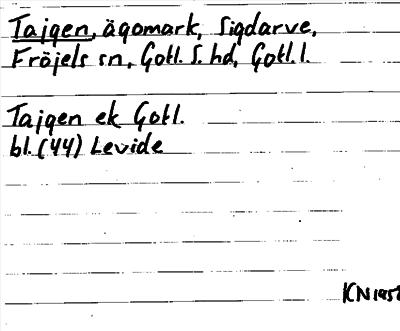 Tajgen, ägomark, Sigdarve,
Fröjels sn, Gotl. S. hd, Gotl. l.
Tajgen ek Gotl.
bl. (44) Levide
KN 1951